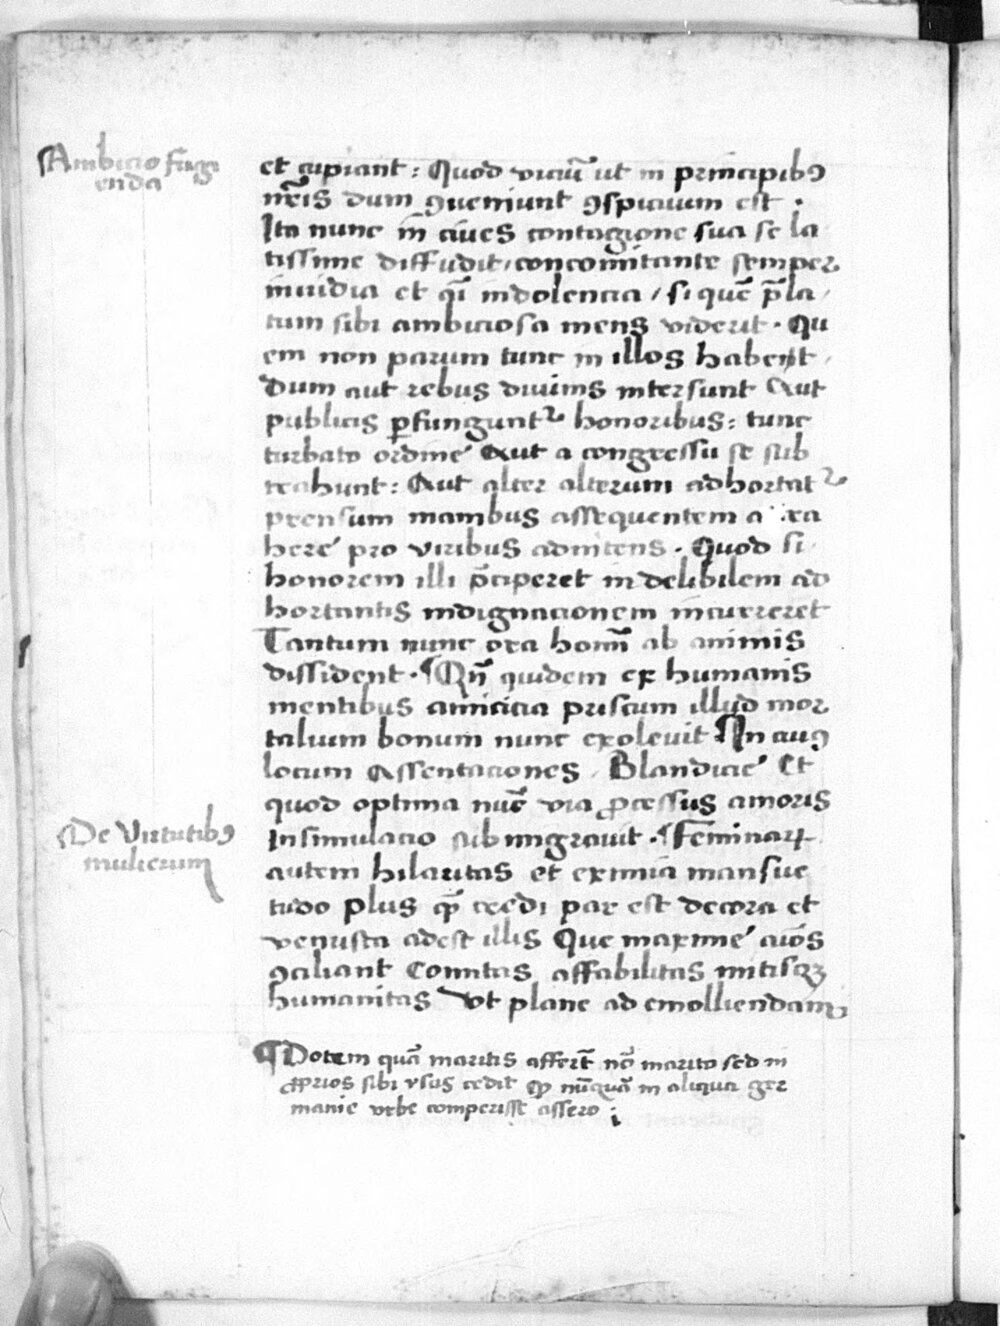 Ambicio fugi
enda
et cupiant : Quod viciū ut in principibꝰ
nr̄is dum ꝯueniunt ꝯspicuum est .
Ita nunc in ciues contagione sua se la
tissime diffudit / concomitante semper
inuidia et qͣi indolencia / si quē p̄la /
tum sibi ambiciosa mens viderit . Qu
em non parum tunc in illos habent /
Dum aut rebus diuinis intersunt Aut
publicis ꝑfunguntᷣ honoribus : tunc
turbato ordine Aut a congressu se sub
trahunt : Aut alter alterum adhortatᷣ
prensum manibus assequentem
here pro viribus adnitens . Quod si
honorem illi p̄ciperet indelibilem ad
hortantis indignacionem incurreret
Tantum nunc ora homī ab animis
dissident . ¶ Qn̄ quidem ex humanis
mentibus amicicia priscum illud mor
talium bonum nunc exoleuit In cuiꝰ
locum Assentaciones / Blandicie Et
quod optima nūc via ꝓcessus amoris
Insimulacio subinigrauit . ¶ Feminaꝝ
autem hilaritas et eximia mansue
tudo plus qͣ̄ credi par est decora et
venusta adest illis Que maxime aīos
ꝯciliant Comitas affabilitas mitisqꝫ
humanitas Vt plane ad emolliendam
De Virtutibꝰ
mulierum
¶ Dotem quā maritis affert nō marito sed in
ꝓprios sibi vsus cedit qͣ̄ nūquā in aliqua ger
manie vrbe comperisse assero ;